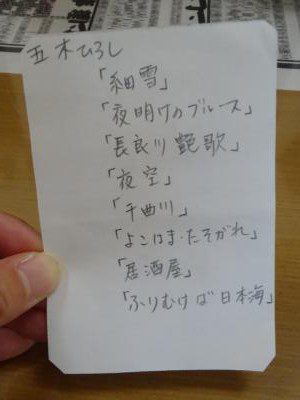 五木ひろし
「細雪」
「夜明けのブルース」
「長良川艶歌」
「夜空」
「千曲川」
「よこはま・たそがれ」
「居酒屋」
「ふりむけば日本海」